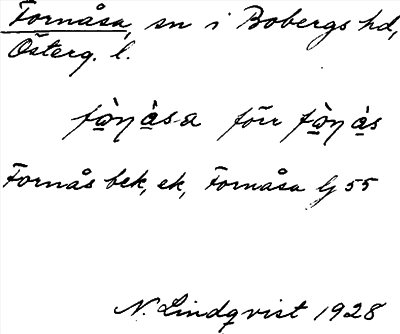 Fornåsa, sn i Bobergs hd,
Österg. l.
fò̱ṇà̱sa förr fò̱ṇà̱s
Fornås bek, ek, Fornåsa Lj 55
N. Lindqvist 1928